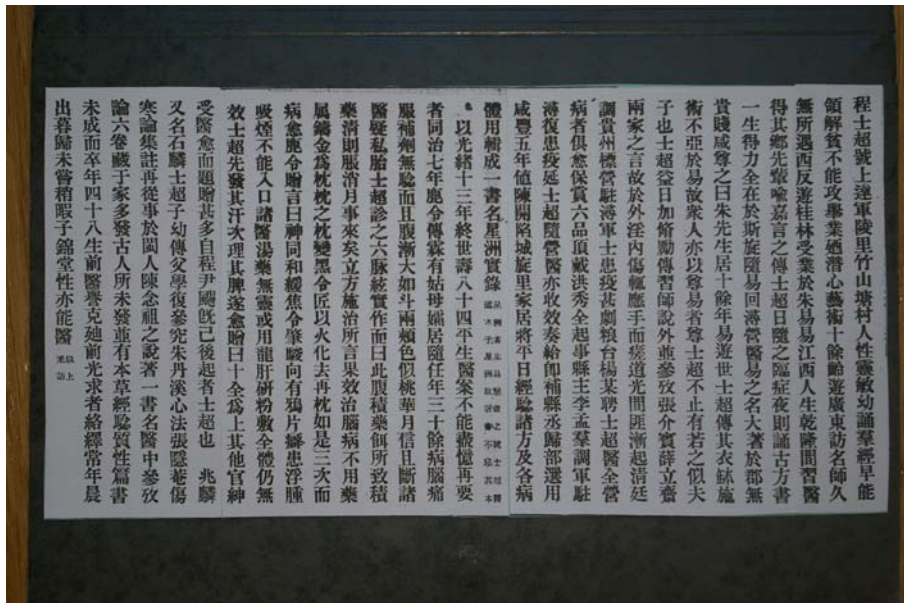 程士超號上達軍陵里竹山塘村人性靈敏幼誦羣經早能
領解貧不能攻舉業廼潛心藝術十餘齡遊廣東訪名師久
無所遇西反遊桂林受業於朱易易江西人生乾隆間習醫
得其鄉先輩喻嘉言之傳士超日隨之臨症夜則誦古方書
一生得力全在於斯旋隨易回潯營醫易之名大著於郡無
貴賤咸尊之曰朱先生居十餘年易遊世士超傳其衣缽施
術不亞於易故衆人亦以尊易者尊士超不止有若之似夫
子也士超益日加脩勵傳習師說外並參攷張介賓薛立齋
兩家之言故於外淫內傷輒應手而瘥道光間匪漸起清廷
調貴州標營駐潯軍士患疫甚劇粮台楊某聘士超醫全營
病者俱愈保賞六品頂戴洪秀全起事縣主李孟羣調軍駐
潯復患疫延士超隨營醫亦收效奏給卽補縣丞歸部選用
咸豐五年値陳開陷城旋里家居將平日經驗諸方及各病
體用輯成一書名星洲實錄
以光緒十三年終世壽八十四平生醫案不能盡憶再要
者同治七年鹿令傳霖有姑母孀居隨任年三十餘病腦痛
服補劑無驗而且腹漸大如斗兩頰色似桃華月信且斷諸
醫疑私胎士超診之六脉絃實作而曰此腹積藥餌所致積
藥淸則脹消月事來矣立方施治所言果效治腦病不用藥
属鑄金爲枕枕之枕變黑令匠以火化去再枕如是三次而
病愈鹿令贈言曰神同和緩焦令肇駿向有鴉片癮患浮腫
吸煙不能入口諸醫湯藥無靈或用龍肝研粉敷全體仍無
效士超先發其汗次理其脾遂愈贈曰十全爲上其他官紳
受醫愈而題贈甚多自程尹颺旣己後起者士超也 兆麟
又名石麟士超子幼傳父學復參究朱丹溪心法張隱菴傷
寒論集註再從事於閩人陳念祖之說著一書名醫中參攷
論六卷藏于家多發古人所未發並有本草經驗質性篇書
未成而卒年四十八生前醫譽克廸前光求者絡繹常年晨
出暮歸未嘗稍暇子錦堂性亦能醫 以上采訪